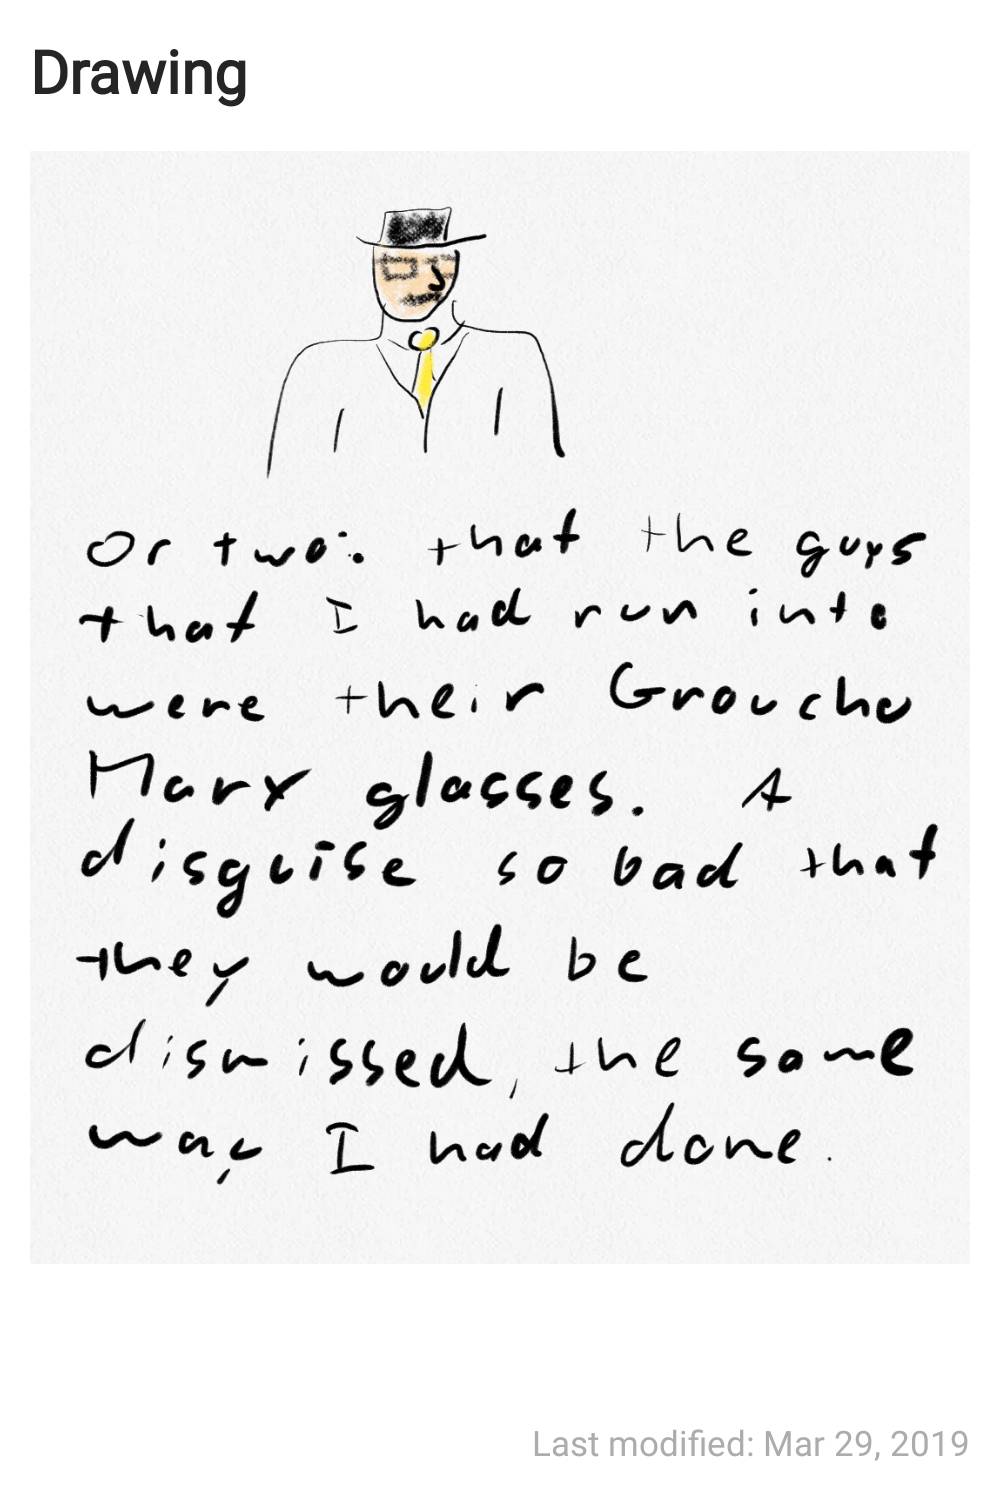 Drawing
Or two: that the guys
that I had run into
were their Groucho
Marx glasses. A
disguise so bad that
they would be
dismissed, the same
way I had done.
Last modified: Mar 29, 2019